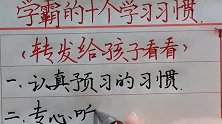 学霸的十个学习习惯
(转发给孩子看看)
一、认真预习的习惯
二、专心听